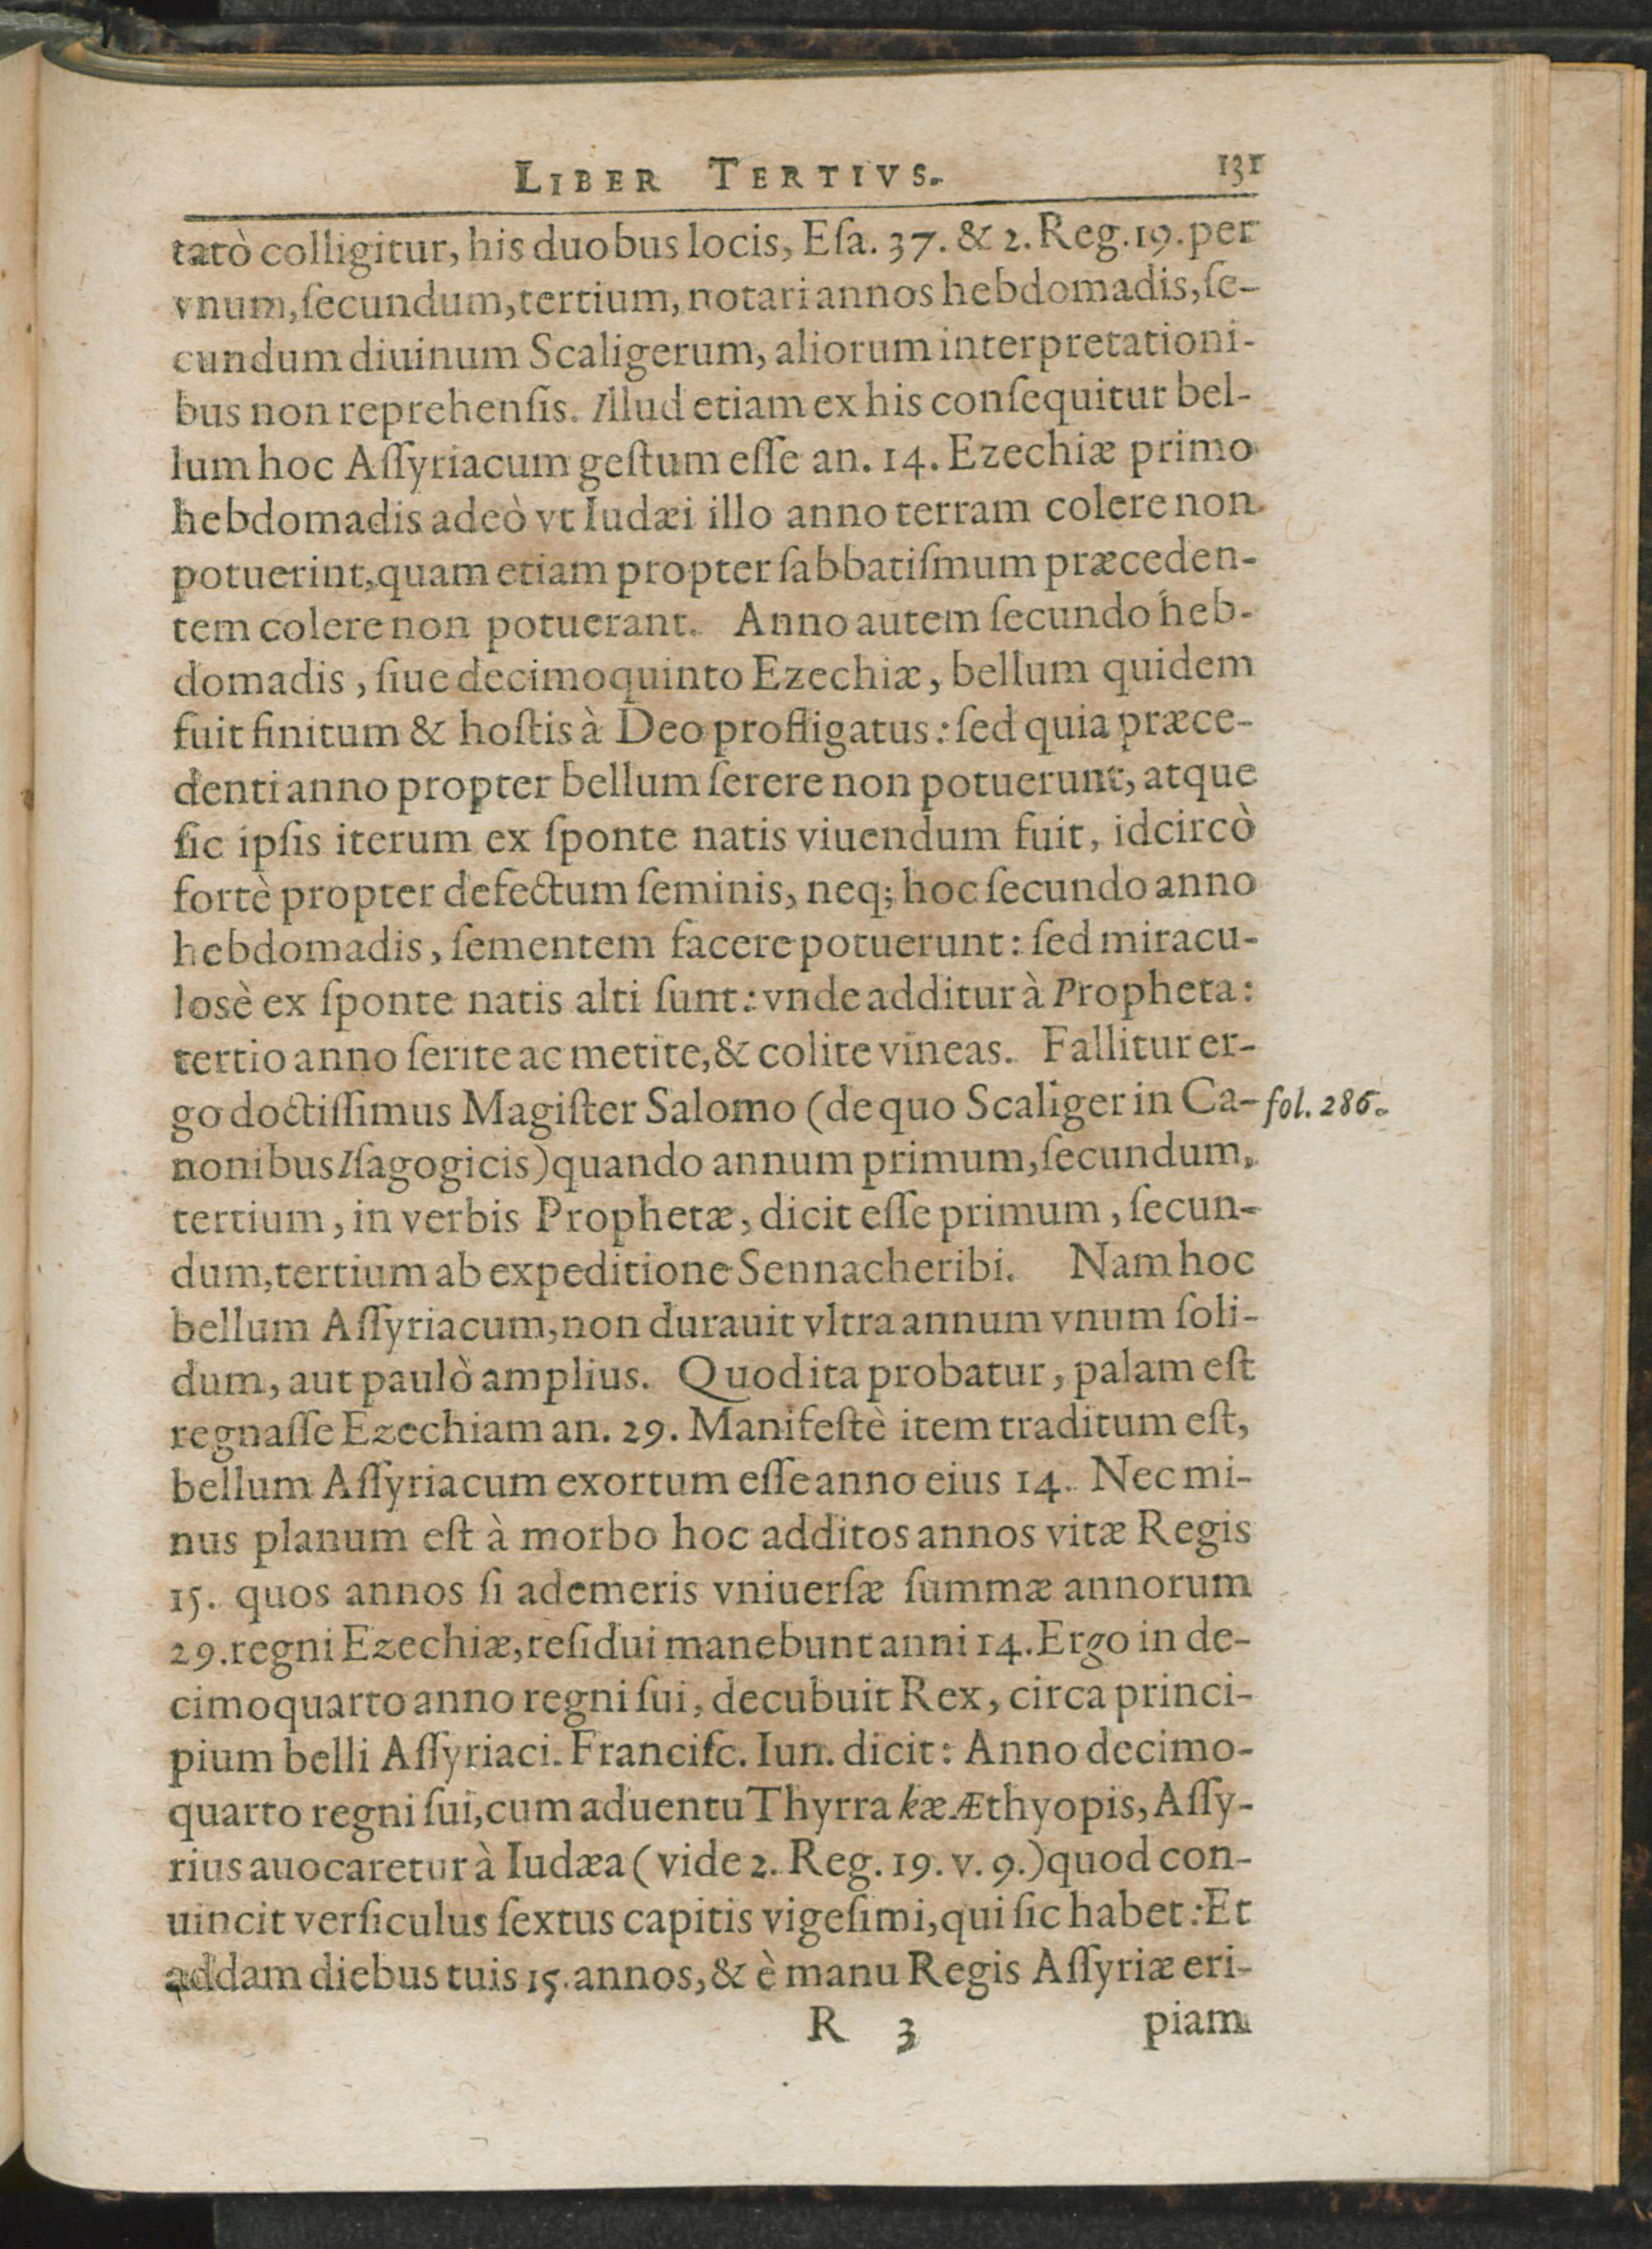 LIBER TERTIVS. 131
tatò colligitur, his duobus locis, Eſa. 37. & 2. Reg. 19. per
vnum, ſecundum, tertium, notari annos hebdomadis, ſe-
cundum diuinum Scaligerum, aliorum interpretationi-
bus non reprehenſis. Illud etiam ex his conſequitur bel-
lum hoc Aſſyriacum geſtum eſſe an. 14. Ezechiæ primo
hebdomadis adeò vt Iudæi illo anno terram colere non
potuerint, quam etiam propter ſabbatiſmum præceden-
tem colere non potuerant. Anno autem ſecundo heb-
domadis, ſiue decimoquinto Ezechiæ, bellum quidem
fuit finitum & hoſtis à Deo profligatus: ſed quia præce-
denti anno propter bellum ſerere non potuerunt, atque
ſic ipſis iterum ex ſponte natis viuendum fuit, idcircò
fortè propter defectum ſeminis, neq; hoc ſecundo anno
hebdomadis, ſementem facere potuerunt: ſed miracu-
losè ex ſponte natis alti ſunt: vnde additur à Propheta:
tertio anno ſerite ac metite, & colite vineas. Fallitur er-
go doctiſſimus Magiſter Salomo (de quo Scaliger in Ca- fol. 286.
nonibus Iſagogicis) quando annum primum, ſecundum,
tertium, in verbis Prophetæ, dicit eſſe primum, ſecun-
dum, tertium ab expeditione Sennacheribi. Nam hoc
bellum Aſſyriacum, non durauit vltra annum vnum ſoli-
dum, aut paulò amplius. Quod ita probatur, palam eſt
regnaſſe Ezechiam an. 29. Manifeſtè item traditum eſt,
bellum Aſſyriacum exortum eſſe anno eius 14. Nec mi-
nus planum eſt à morbo hoc additos annos vitæ Regis
15. quos annos ſi ademeris vniuerſæ ſummæ annorum
29. regni Ezechiæ, reſidui manebunt anni 14. Ergo in de-
cimoquarto anno regni ſui, decubuit Rex, circa princi-
pium belli Aſſyriaci. Franciſc. Iun. dicit: Anno decimo-
quarto regni ſui, cum aduentu Thyrra kæ Æthyopis, Aſſy-
rius auocaretur à Iudæa (vide 2. Reg. 19. v. 9.) quod con-
uincit verſiculus ſextus capitis vigeſimi, qui ſic habet: Et
addam diebus tuis 15. annos, & è manu Regis Aſſyriæ eri-
R 3 piam